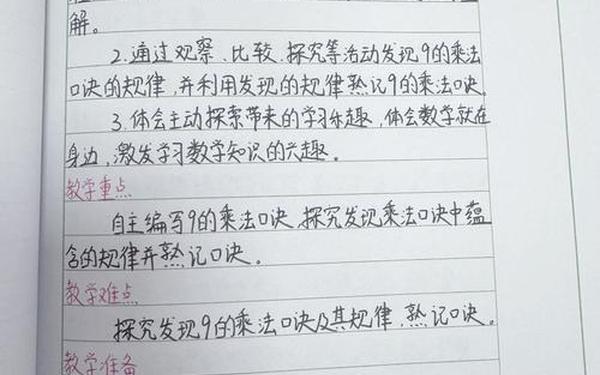 解。
2.通过观察、比较、探究等活动发现9的乘法
口诀的规律,并利用发现的规律熟记9的乘法口诀.
3.体会主动探索带来的学习乐趣,体会数学就在
身边,激发学习数学知识的兴趣。
教学重点
自主编写9的乘法口诀,探究发现乘法口诀中蕴
含的规律并熟记口诀。
教学难点
探究发现9的乘法口诀及其规律,熟记口诀。
教学准备